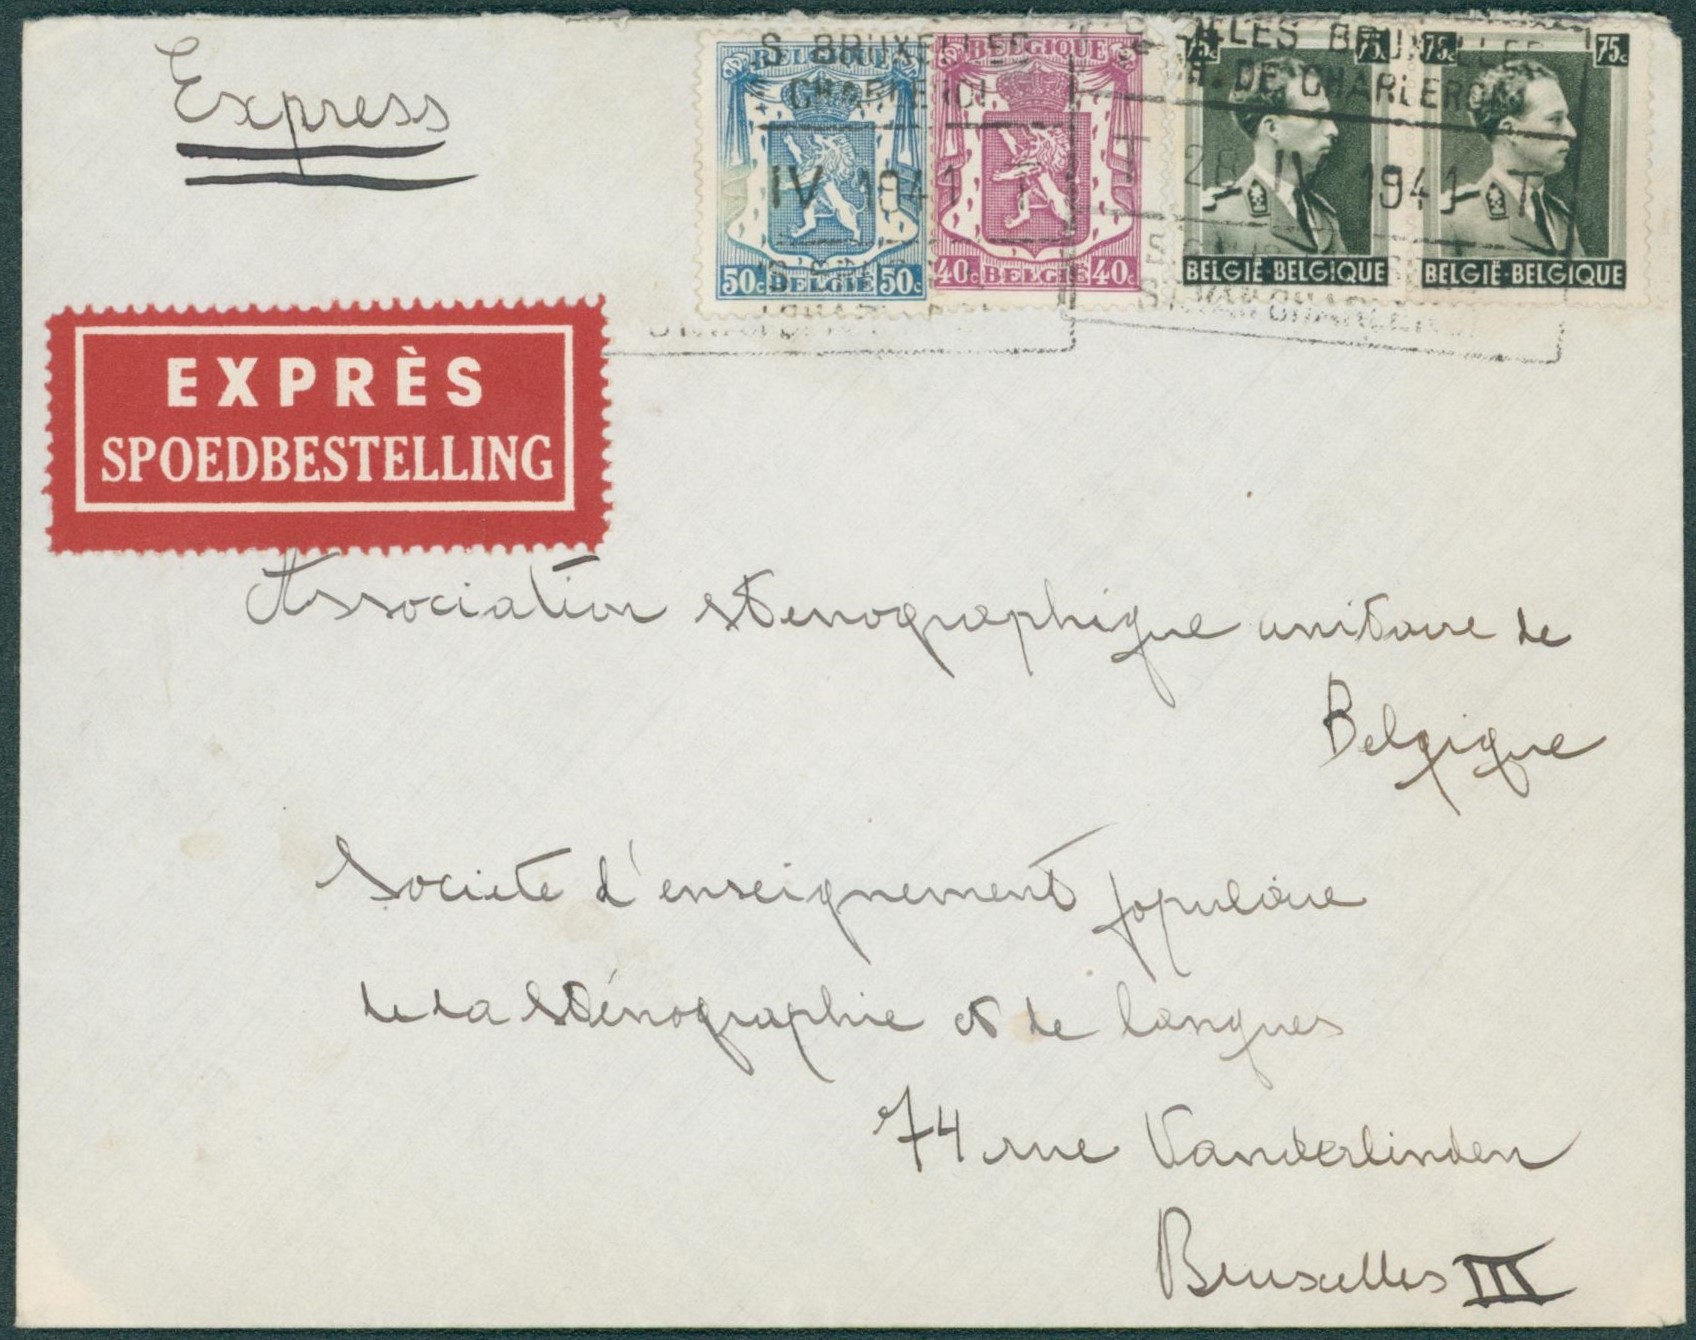 Express
S BRUXELLES
CHARLEROI
IV 1941 T
BRUXELLES
CH. DE CHARLEROI
28 IV 1941 T
ST.W. VAN CHARLEROI
BELGIQUE
50c BELGIE 50c
BELGIQUE
40c BELGIE 40c
75c 75c
BELGIË-BELGIQUE
75c 75c
BELGIË-BELGIQUE
EXPRÈS
SPOEDBESTELLING
Association sténographique unitaire de
Belgique
Societe d'enseignement populaire
de la Sténographie et de langues
74 rue Vanderlinden
Bruxelles III